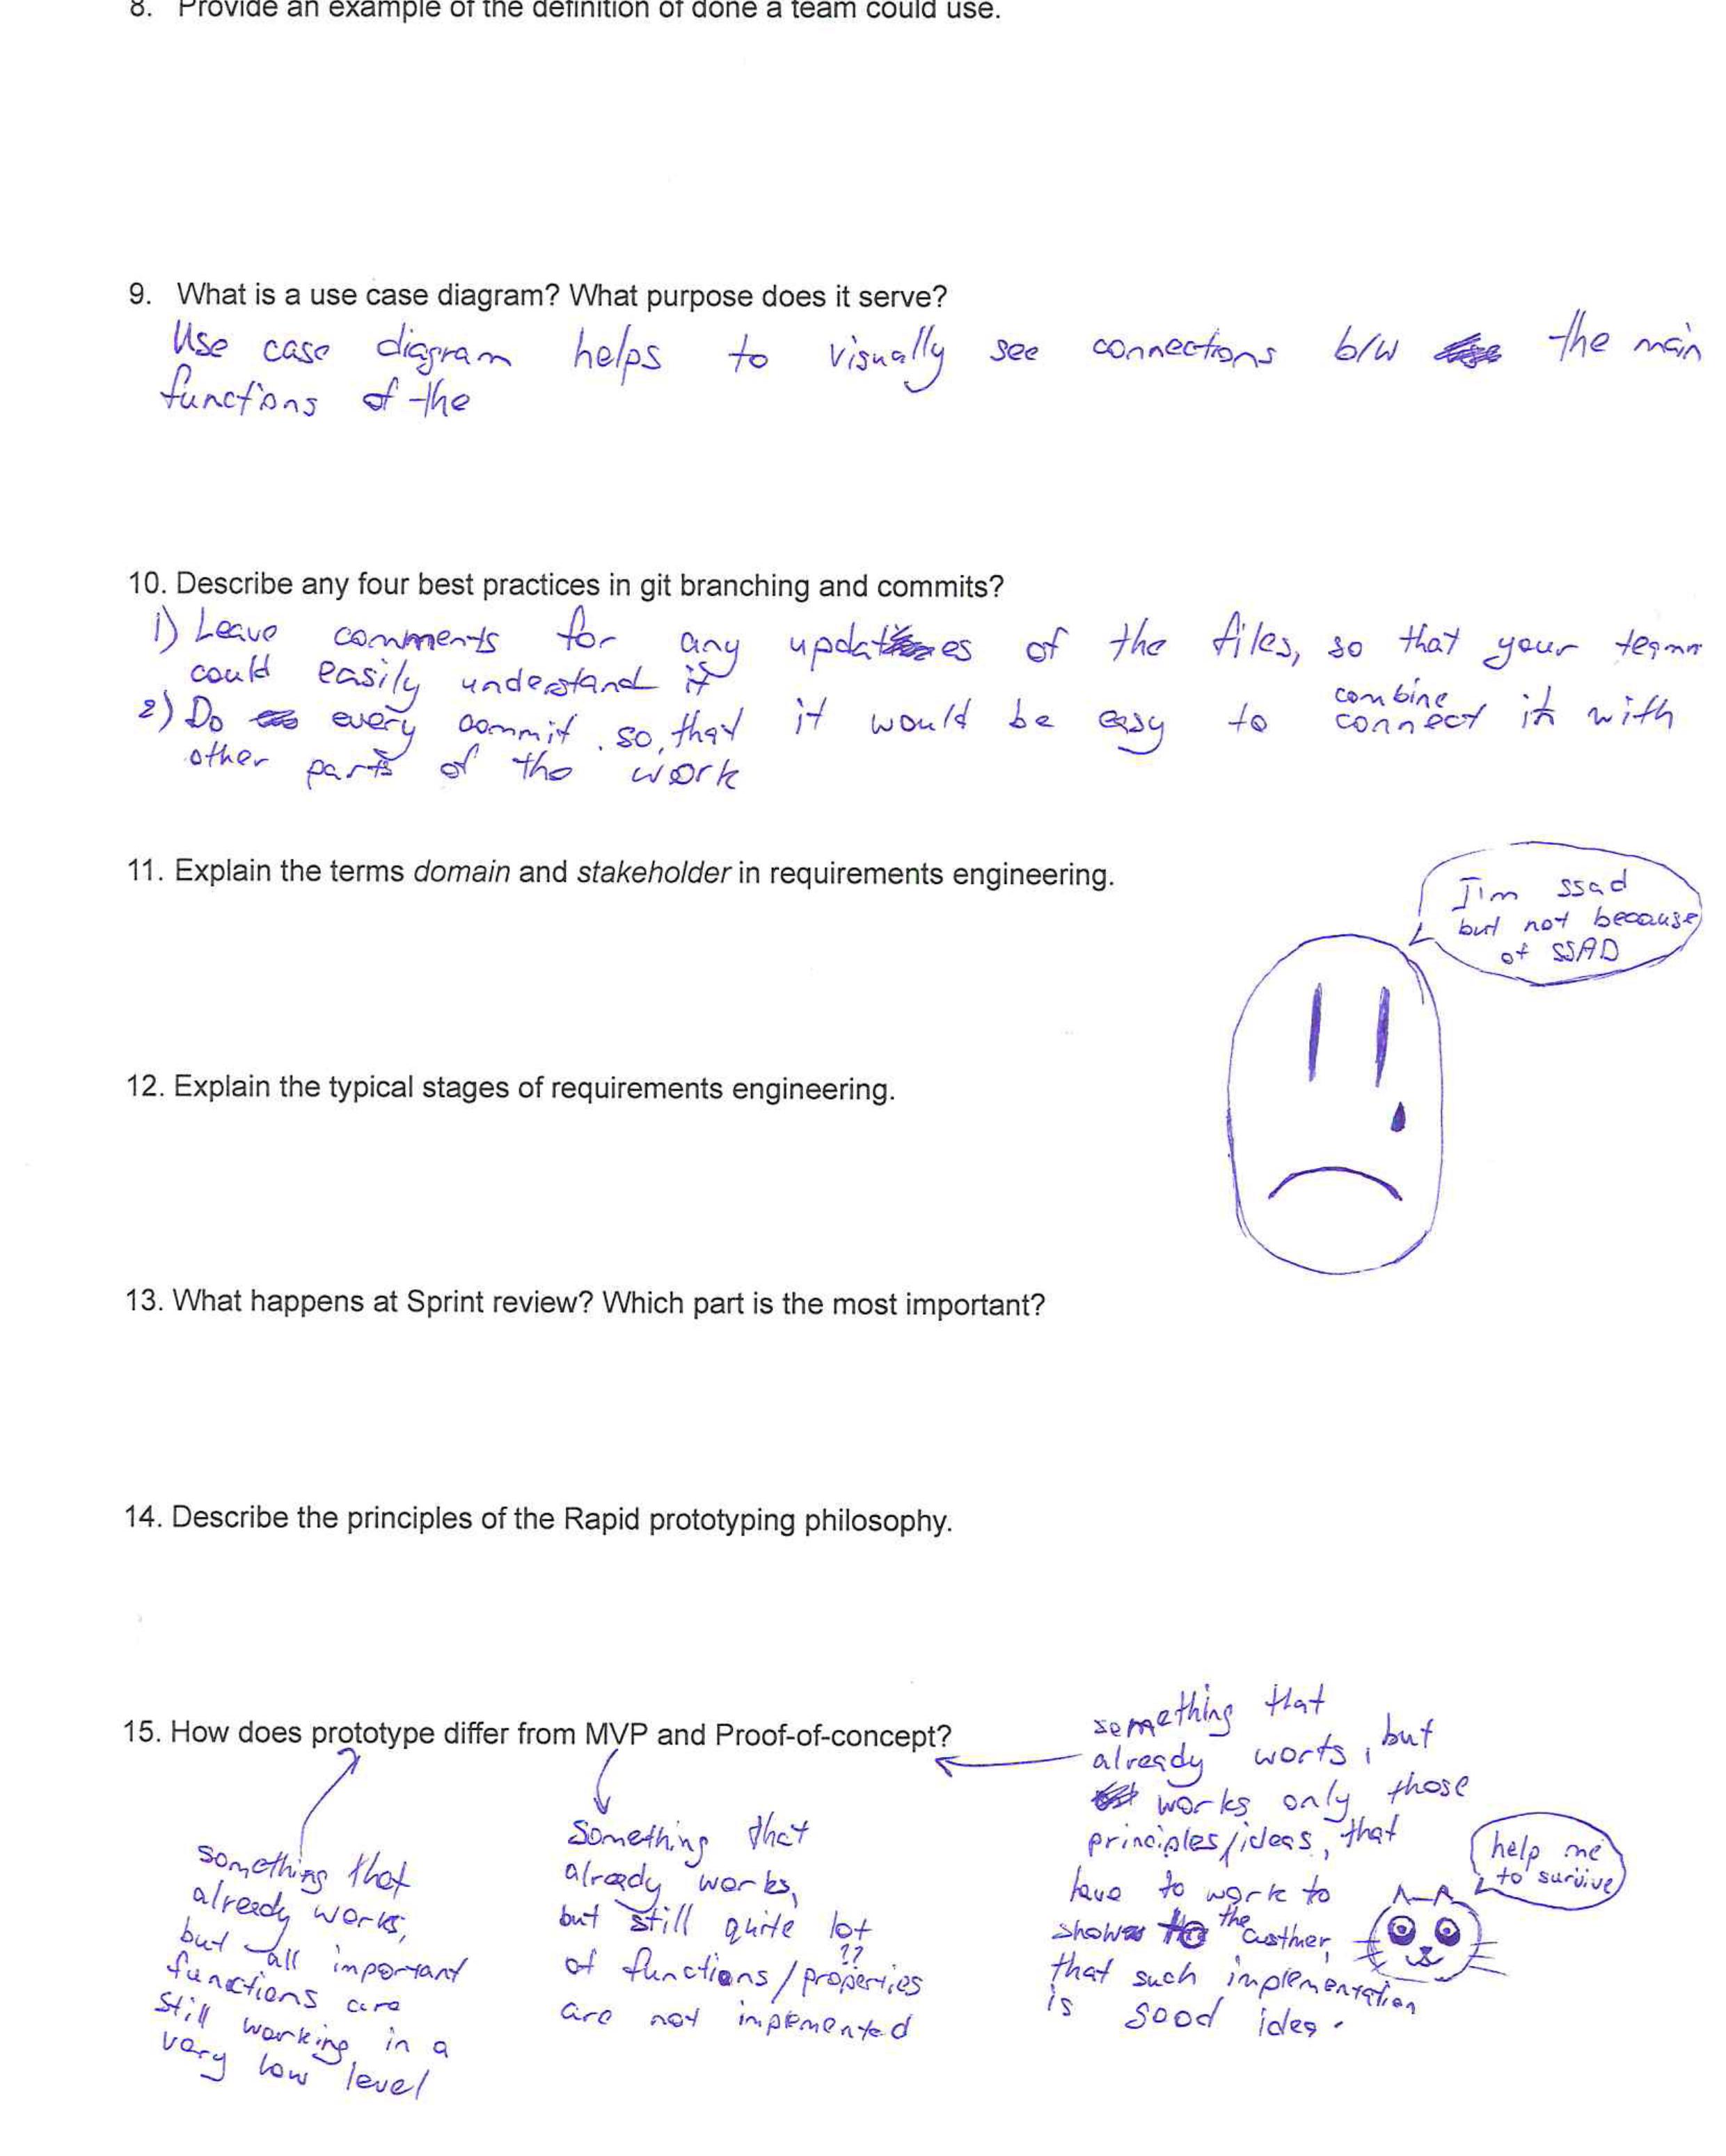 8. Provide an example of the definition of done a team could use.
9. What is a use case diagram? What purpose does it serve?
Use case diagram helps to visually see connections b/w the main
functions of the
10. Describe any four best practices in git branching and commits?
1) Leave comments for any updates of the files, so that your team
could easily understand it
2) Do every commit so, that it would be easy to connect it with
combine
other parts of the work
11. Explain the terms domain and stakeholder in requirements engineering.
I'm ssad
but not because
of SSAD
12. Explain the typical stages of requirements engineering.
13. What happens at Sprint review? Which part is the most important?
14. Describe the principles of the Rapid prototyping philosophy.
15. How does prototype differ from MVP and Proof-of-concept?
something that
already works,
but all important
functions are
still working in a
very low level
Something that
already works,
but still quite lot
??
of functions/properties
are not impemented
something that
already worts, but
works only those
principles/ideas, that
have to work to
show the custmer,
that such implementation
is good idea.
help me
to survive